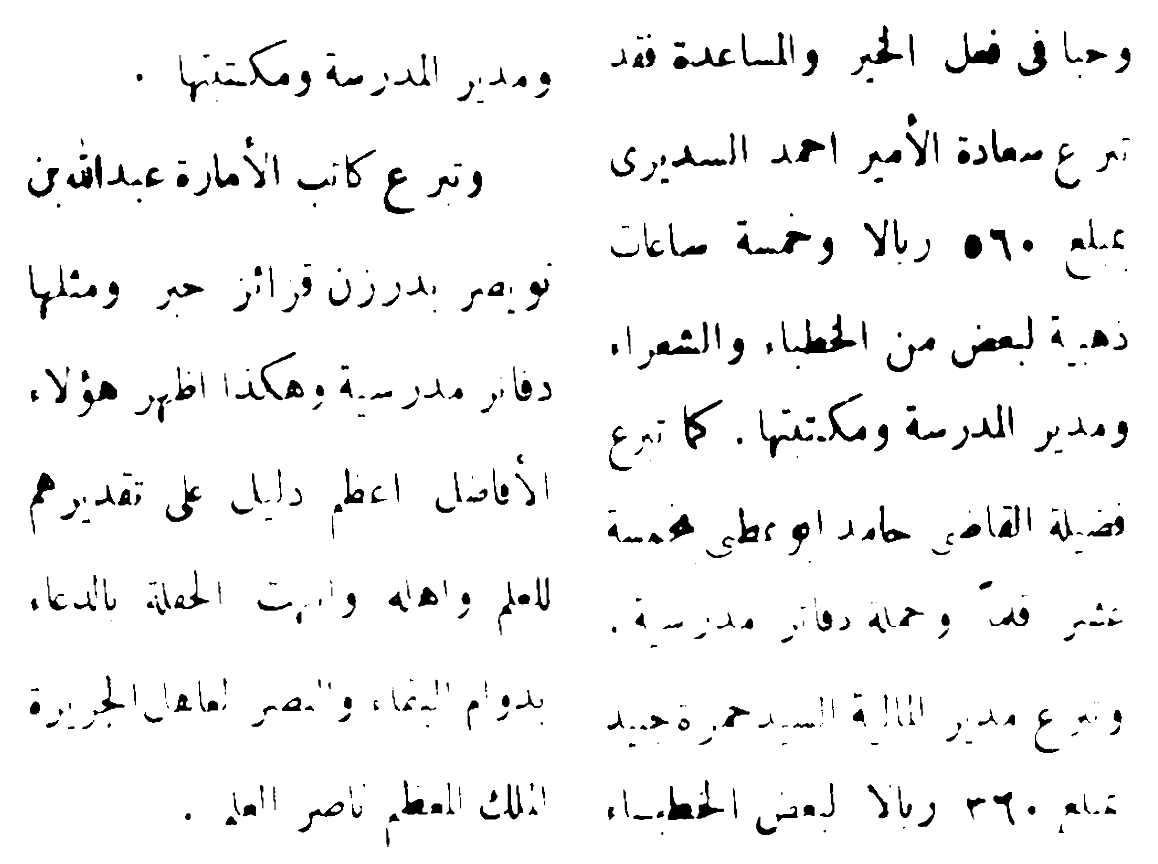 وحبا فى فعل الخير والمساعدة فقد
تبرع سعادة الأمير احمد السديرى
بمبلغ ٥٦٠ ريالا وخمسة ساعات
ذهبية لبعض من الخطباء والشعراء
ومدير المدرسة ومكتبتها . كما تبرع
فضيلة القاضى حامد ابو عطى بخمسة
عشر قلماً وجملة دفاتر مدرسية .
وتبرع مدير المالية السيد حمزة جبيد
بمبلع ٣٦٠ ريالا لبعض الخطباء
ومدير المدرسة ومكتبتها .
وتبرع كاتب الأمارة عبدالله بن
نويصر بدرزن قزائز حبر ومثلها
دفاتر مدرسية وهكذا اظهر هؤلاء
الأفاضل اعظم دليل على تقديرهم
للعلم واهله وانتهت الحفلة بالدعاء
بدوام البقاء والنصر لعاهل الجزيرة
الملك المعظم ناصر العلم .